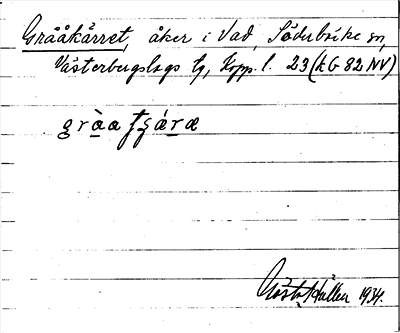 Grååkärret, åker i Vad, Söderbärke sn,
Västerbergslags tg, Kopp. l. 23 (kG 82 NV)
gràa tʃǽræ
Gösta Hallen 1934.